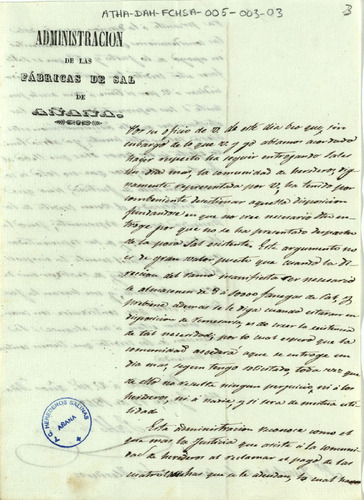 ATHA-DAH-FCHSA-005-003-03
3
ADMINISTRACION
DE LAS
FÁBRICAS DE SAL
DE
AÑANA.
Por su oficio de V. de este dia veo que, sin
embargo de lo que V. y yo abiamos acordado
hayer respecto ha seguir entregando sales
un dia mas, la comunidad de herederos, dig-
namente representada por V, ha tenido por
combeniente desestimar aquella disposicion
fundandose en que no cree necesario dha en-
trega por que no se ha presentado despacho
de la poca Sal existente. Este argumento no
es de gran valor puesto que cuando la Di-
reccion del ramo manifiesta ser necesario
se almacenen de 8 a 1000 fanegas de Sal, y
prebiene ademas se le diga cuando esternen en
disposicion de , es de creer la existencia
de tal necesidad; por lo cual espero que la
comunidad accedera a que se entregue un
dia mas, segun tengo solicitado, toda vez que
de ello no resulta ningun perjuicio ni a los
herederos, ni a nadie; y si sera de mutua uti-
lidad.
Esta administracion reconoce como el
que mas la Justicia que asiste a la comuni-
dad de herederos al reclamar el pago de las
que se le adeudan, lo cual
T. G. HEREDEROS SALINAS
AÑANA